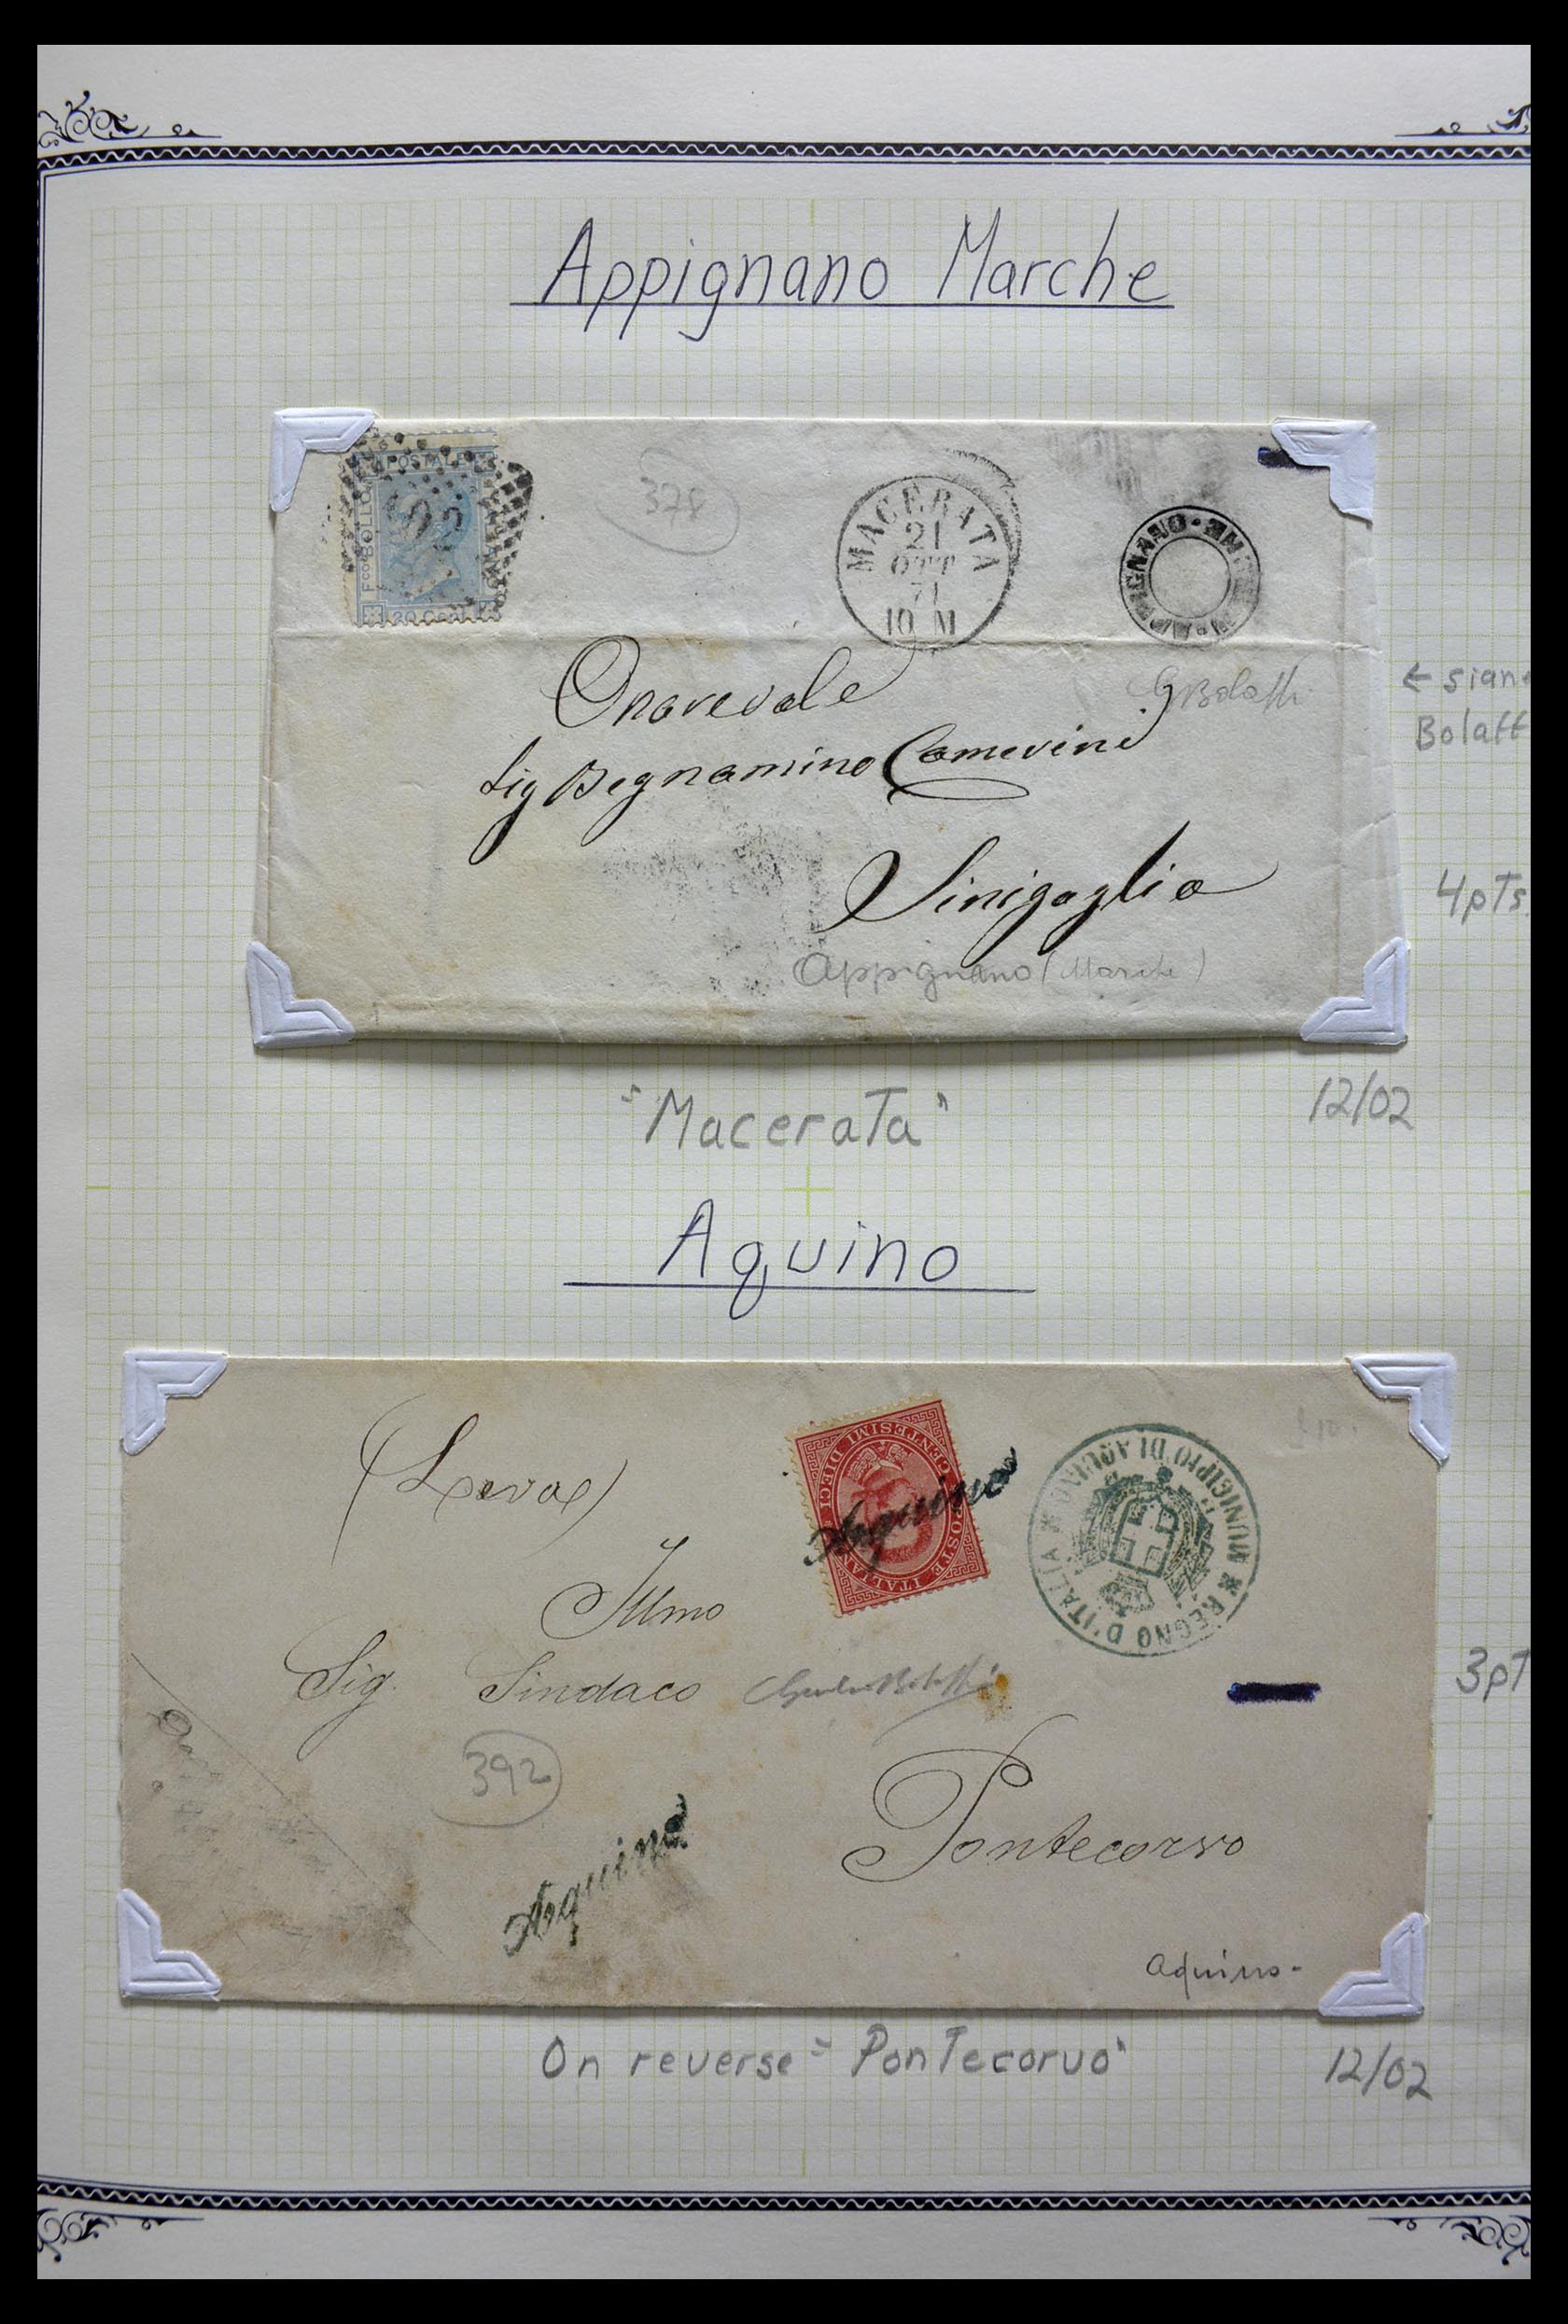 Appignano Marche
POSTALE
Fco BOLLO
20 Cent
378
MACERATA
21
OTT
71
10 M
APPIGNANO
Onorevole
GBolaffi
Sig Begnamino Camerini
Sinigaglia
Appignano (Marche)
← sian
Bolaff
4pTs.
"MaceraTa"
12/02
Aquino
CENTESIMI DIECI
POSTE ITALIAN
Aquino
MUNICIPIO DI AQUINO
REGNO D'ITALIA
Illmo
Sig. Sindaco
392
Aquino
Pontecorvo
Aquino-
3pT
On reverse "PonTecorvo"
12/02